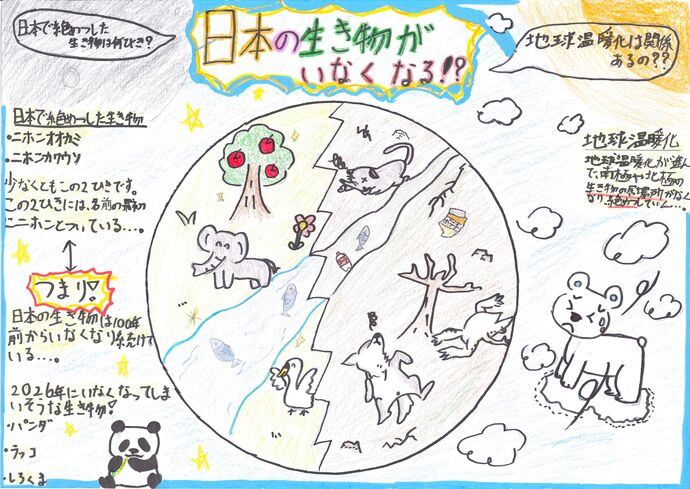 日本の生き物が
いなくなる!?
日本で絶めつした
生き物は何びき?
地球温暖化は関係
あるの??
日本で絶めつした生き物
・ニホンオオカミ
・ニホンカワウソ
少なくともこの2ひきです。
この2ひきには、名前の最初
にニホンとついている…。
つまり!
日本の生き物は100年
前からいなくなり続けて
いる…。
2026年にいなくなってしま
いそうな生き物?
・パンダ
・ラッコ
・しろくま
地球温暖化
地球温暖化が進ん
で、南極や北極の
生き物の居場所がなく
なり、絶めつしていく…。